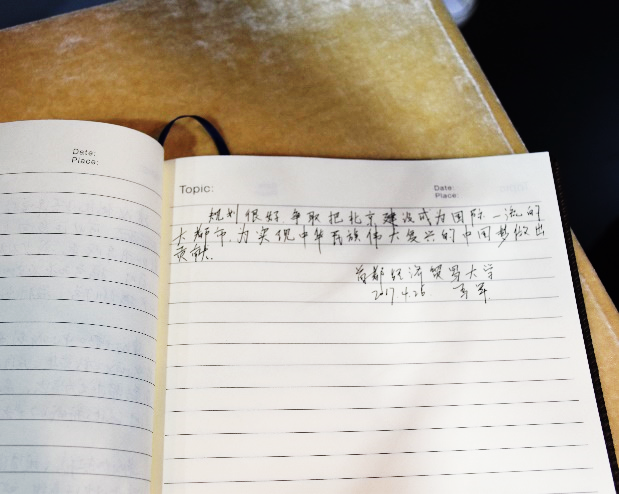 Date:
Place:
Topic:
Date:
Place:
规划很好争取把北京建设成为国际一流的
大都市,为实现中华民族伟大复兴的中国梦做出
贡献.
首都经济贸易大学
2017.4.26